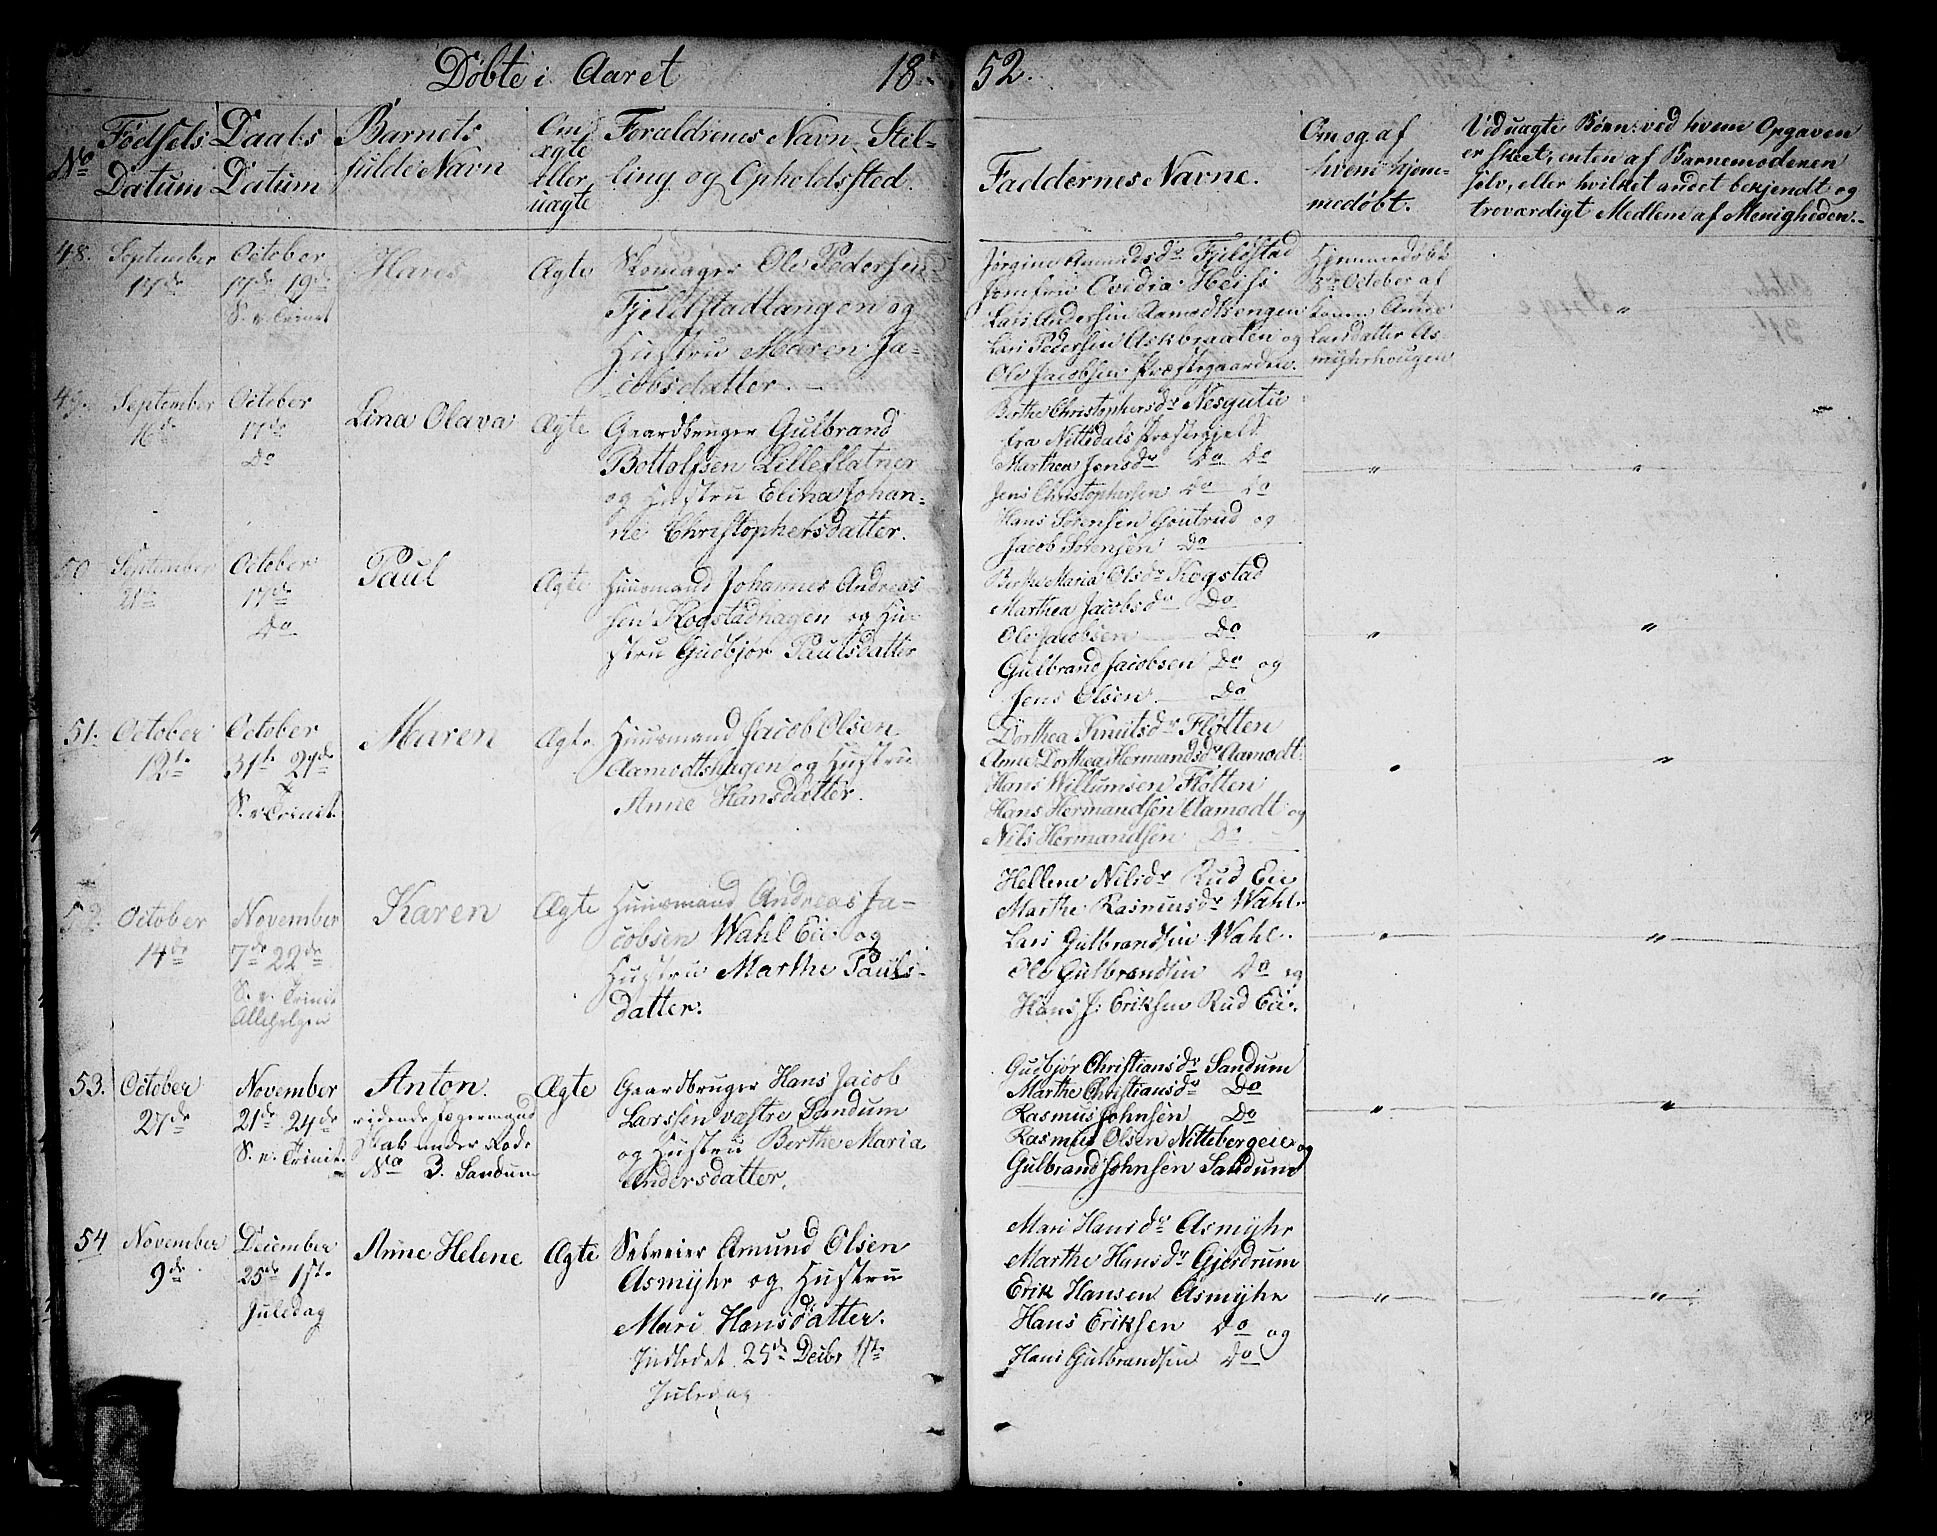 Døbte i Aaret 1852.
No
Fødsels Datum
Daabs Datum
Barnets fulde Navn
Om ægte eller uægte
Forældrenes Navn, Stilling og Opholdssted.
Faddernes Navne.
Om og af hvem hjemmedøbt.
Ved uægte Børn: ved hvem Opgaven
er skeet, enten af Barnemoderen
selv, eller hvilket andet bekjendt og
troværdigt Medlem af Menigheden.
48. September 17de
October 17de 19de S. v. Trinit
Hans
Ægte
Skomager Ole Pedersen
Fjeldstadtangen og
Hustru Maren Ja-
cobsdatter.
Jørgine Amundsdr Fjeldstad
Jomfru Ovidia Heiss
Lars Andersen Aamodtsengen
Lars Pedersen Askbraaten og
Ole Jacobsen Præstegaarden.
Hjemmedøbt
October af
Anne
Larsdatter As-
myhrhougen
49. September 16de
October 17de Do
Lina Olava
Ægte
Gaardbruger Gulbrand
Bottolfsen Lilleflatner
og Hustru Elina Johan-
ne Christophersdatter.
Berthe Christophersdr Nesgutu
fra Nittedals Præstegjeld
Marthea Jensdr Do Do
Jens Christophersen Do Do
Hans Sørensen Goutrud og
Jacob Sørensen Do
50 September 21de
October 17de Do
Paul
Ægte
Huusmand Johannes Andreas
sen Kogstadhagen og Hu-
stru Gudbjør Paulsdatter
Berthe Maria Olsdr Kogstad
Marthea Jacobsdr Do
Ole Jacobsen Do
Gulbrand Jacobsen Do og
Jens Olsen Do
51. October 12te
October 31te S. v. Trinit.
Maren
Ægte
Huusmand Jacob Olsen
Aamodtshagen og Hustru
Anne Hansdatter.
Dorthea Knutsdr Fløtten
Anne Dorthea Hermandsdr Aamodt
Hans Willumsen Fløtten
Hans Hermandsen Aamodt og
Nils Hermandsen Do
52. October 14de
November 7de 22de S. v. Trinit Allehelgen
Karen
Ægte
Huusmand Andreas Ja-
cobsen Wahl Eie og
Hustru Marthe Pauls-
datter.
Hellene Nilsdr Rud Eie
Marthe Rasmusdr Wahl.
Lars Gulbrandsen Wahl.
Ole Gulbrandsen Do og
Hans J. Eriksen Rud Eie.
53. October 27de
November 21de 24de S. v. Trinit.
Anton.
ridende Jægermand
Stab under Rode
No 3. Sandum
Ægte
Gaardbruger Hans Jacob
Larssen væstre Sandum
og Hustru Berthe Maria
Andersdatter.
Gudbjør Christiansdr Sandum
Marthe Christiansdr Do
Rasmus Johnsen Do
Rasmus Olsen Nittebergeie og
Gulbrand Johnsen Sandum
54 November 9de
December 25de 1ste Juledag
Anne Helene
Ægte
Selveier Amund Olsen
Asmyhr og Hustru
Mari Hansdatter.
Indledet 25de Decbr 1ste
Juledag
Mari Hansdr Asmyhr
Marthe Hansdr Gjerdrum
Erik Hansen Asmyhr
Hans Eriksen Do og
Hans Gulbrandsen Do